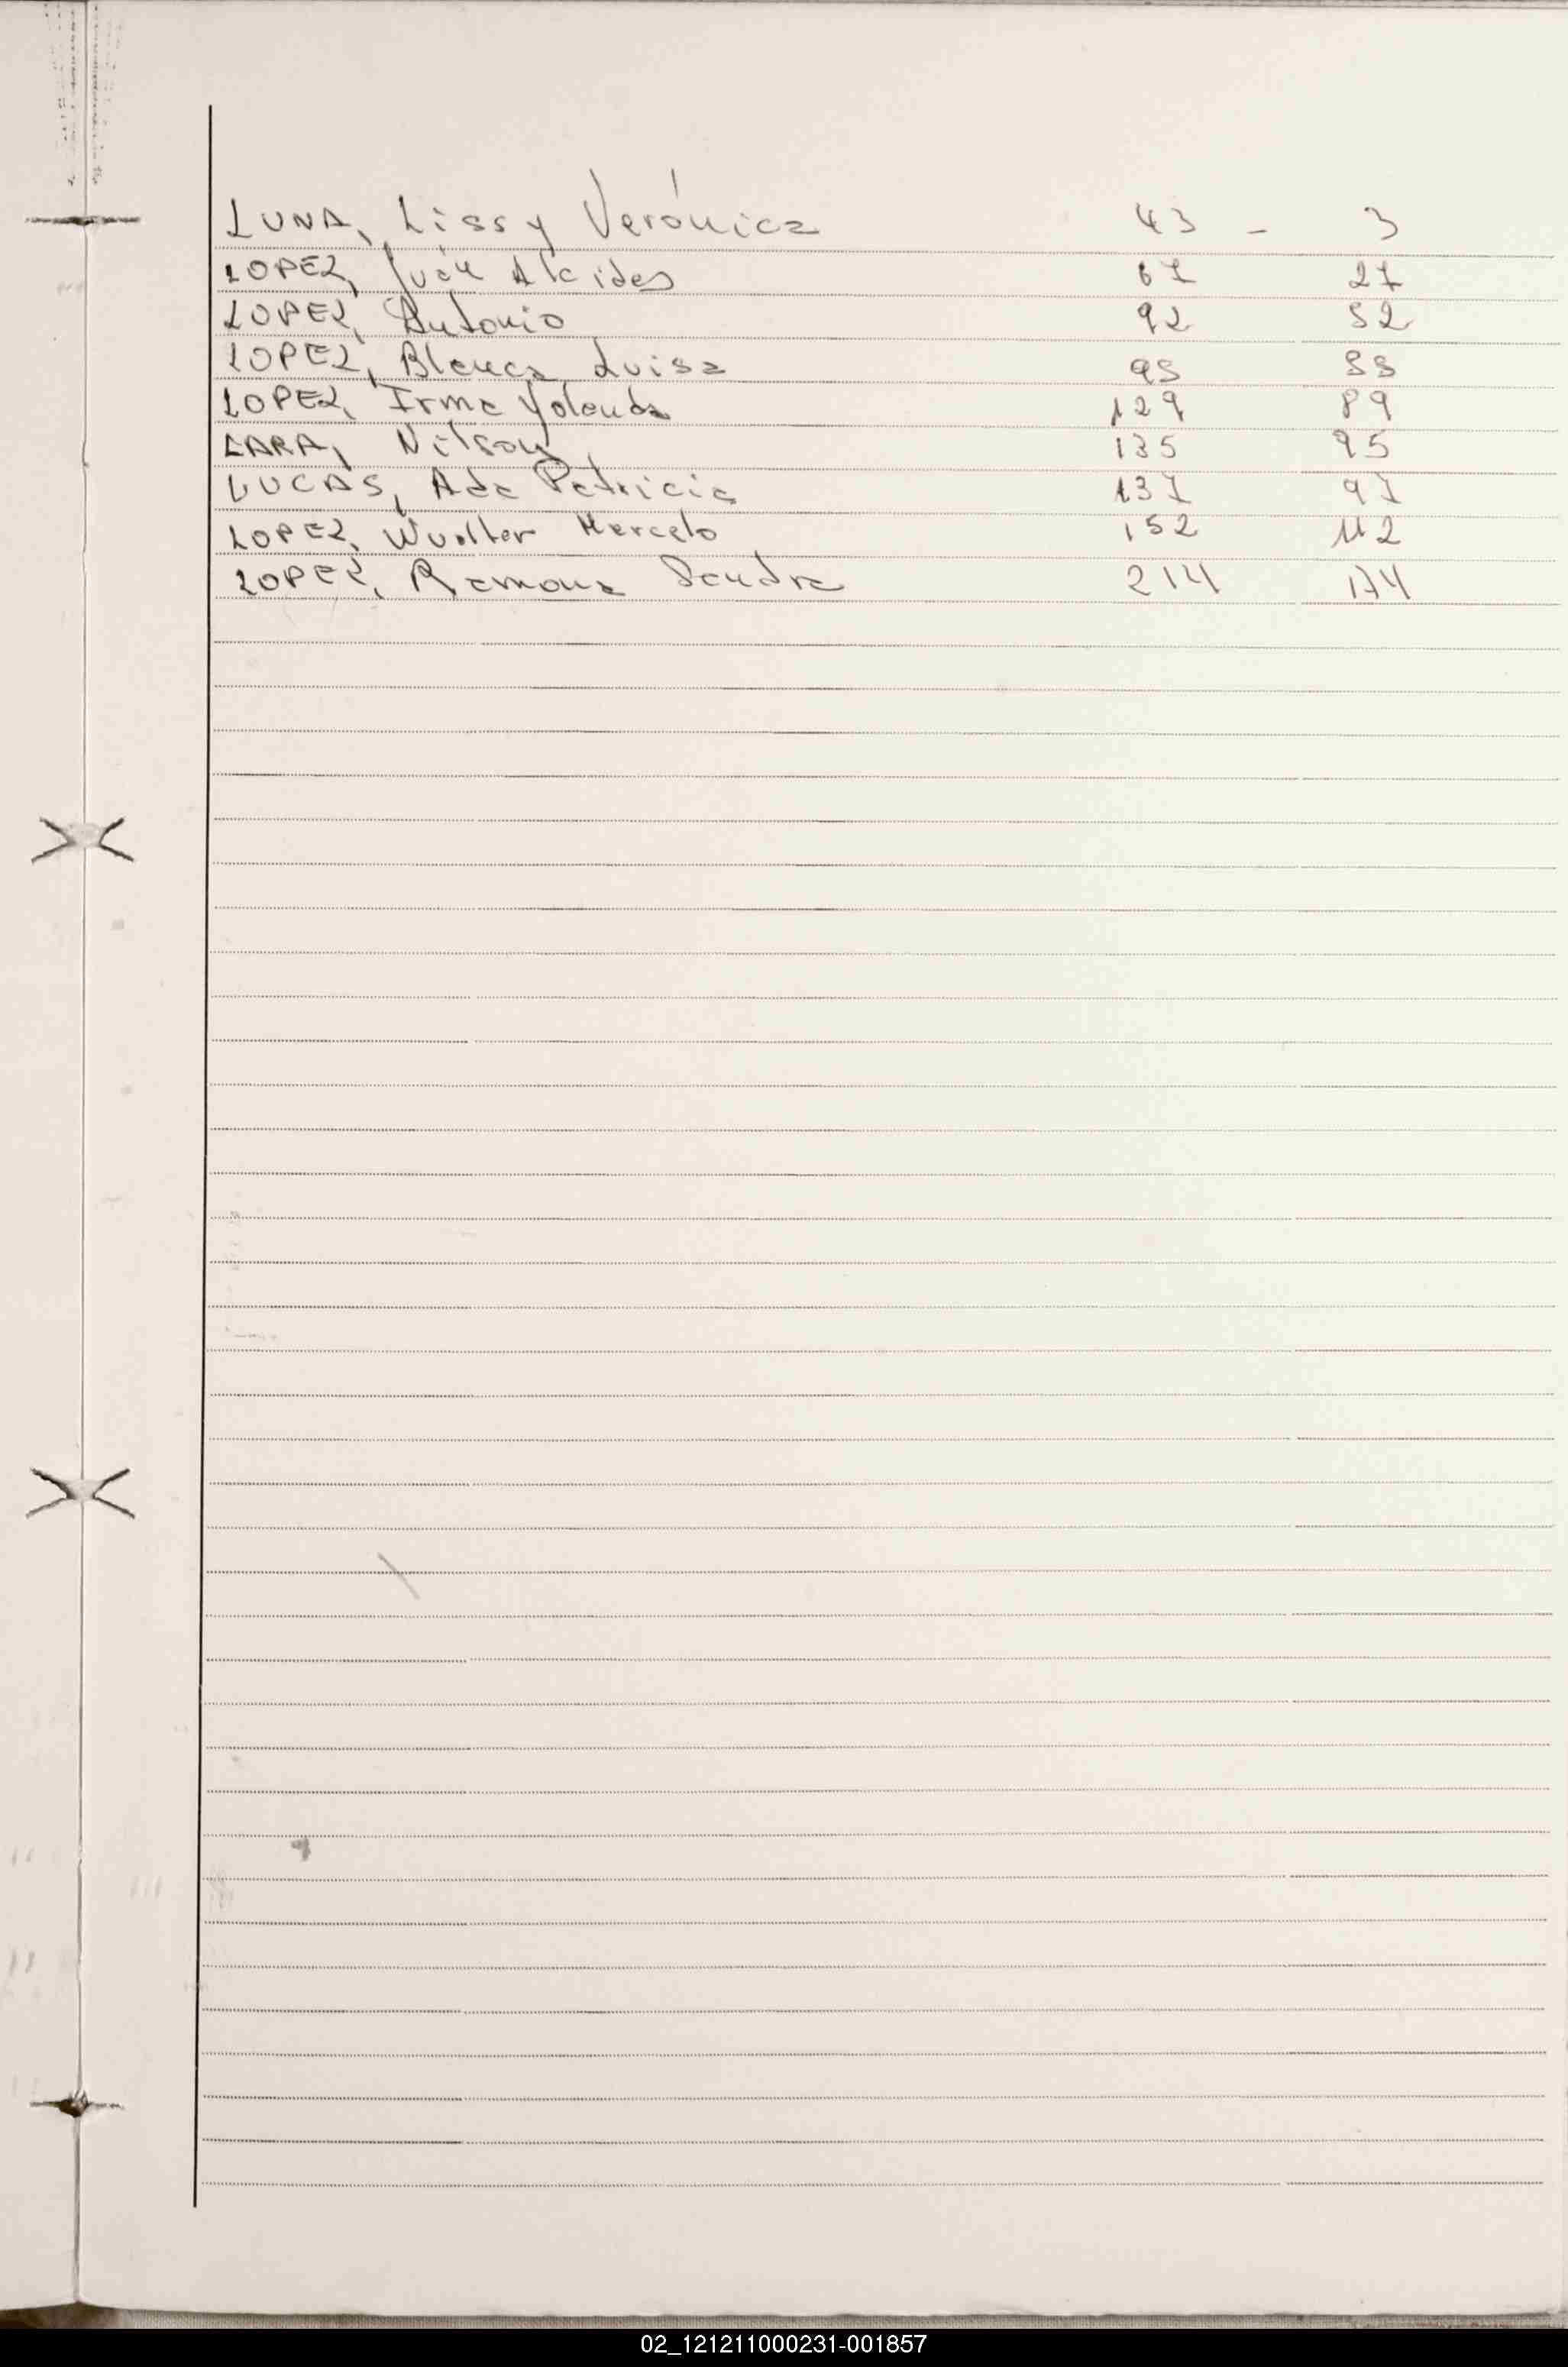 LUNA, Lissy Verónica 43 - 3
LOPEZ, Juán Alcides 67 27
LOPEZ, Antonio 92 52
LOPEZ, Blanca Luisa 95 55
LOPEZ, Irma Yolanda 129 89
LARA, Nelson 135 95
LUCAS, Ada Patricia 137 97
LOPEZ, Wualter Marcelo 152 112
LOPEZ, Ramona Sandra 214 174
02_121211000231-001857